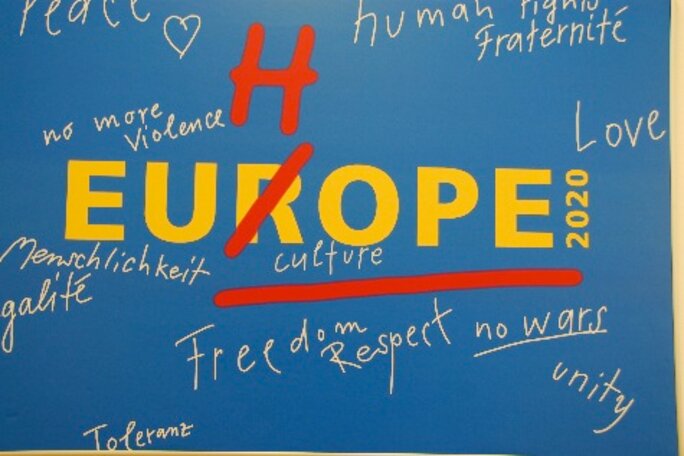 Peace
human rights
Fraternité
H
no more
violence
Love
EUROPE 2020
Menschlichkeit
culture
galité
Freedom
Respect
no wars
unity
Toleranz